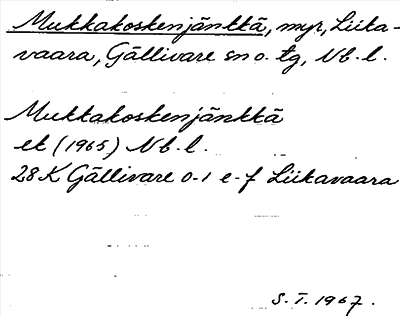 Mukkakoskenjänkkä, myr, Liika-
vaara, Gällivare sn o. tg, Nb. l.
Mukkakoskenjänkkä
ek (1965) Nb. l.
28K Gällivare 0-1 e-f Liikavaara
S. I. 1967.